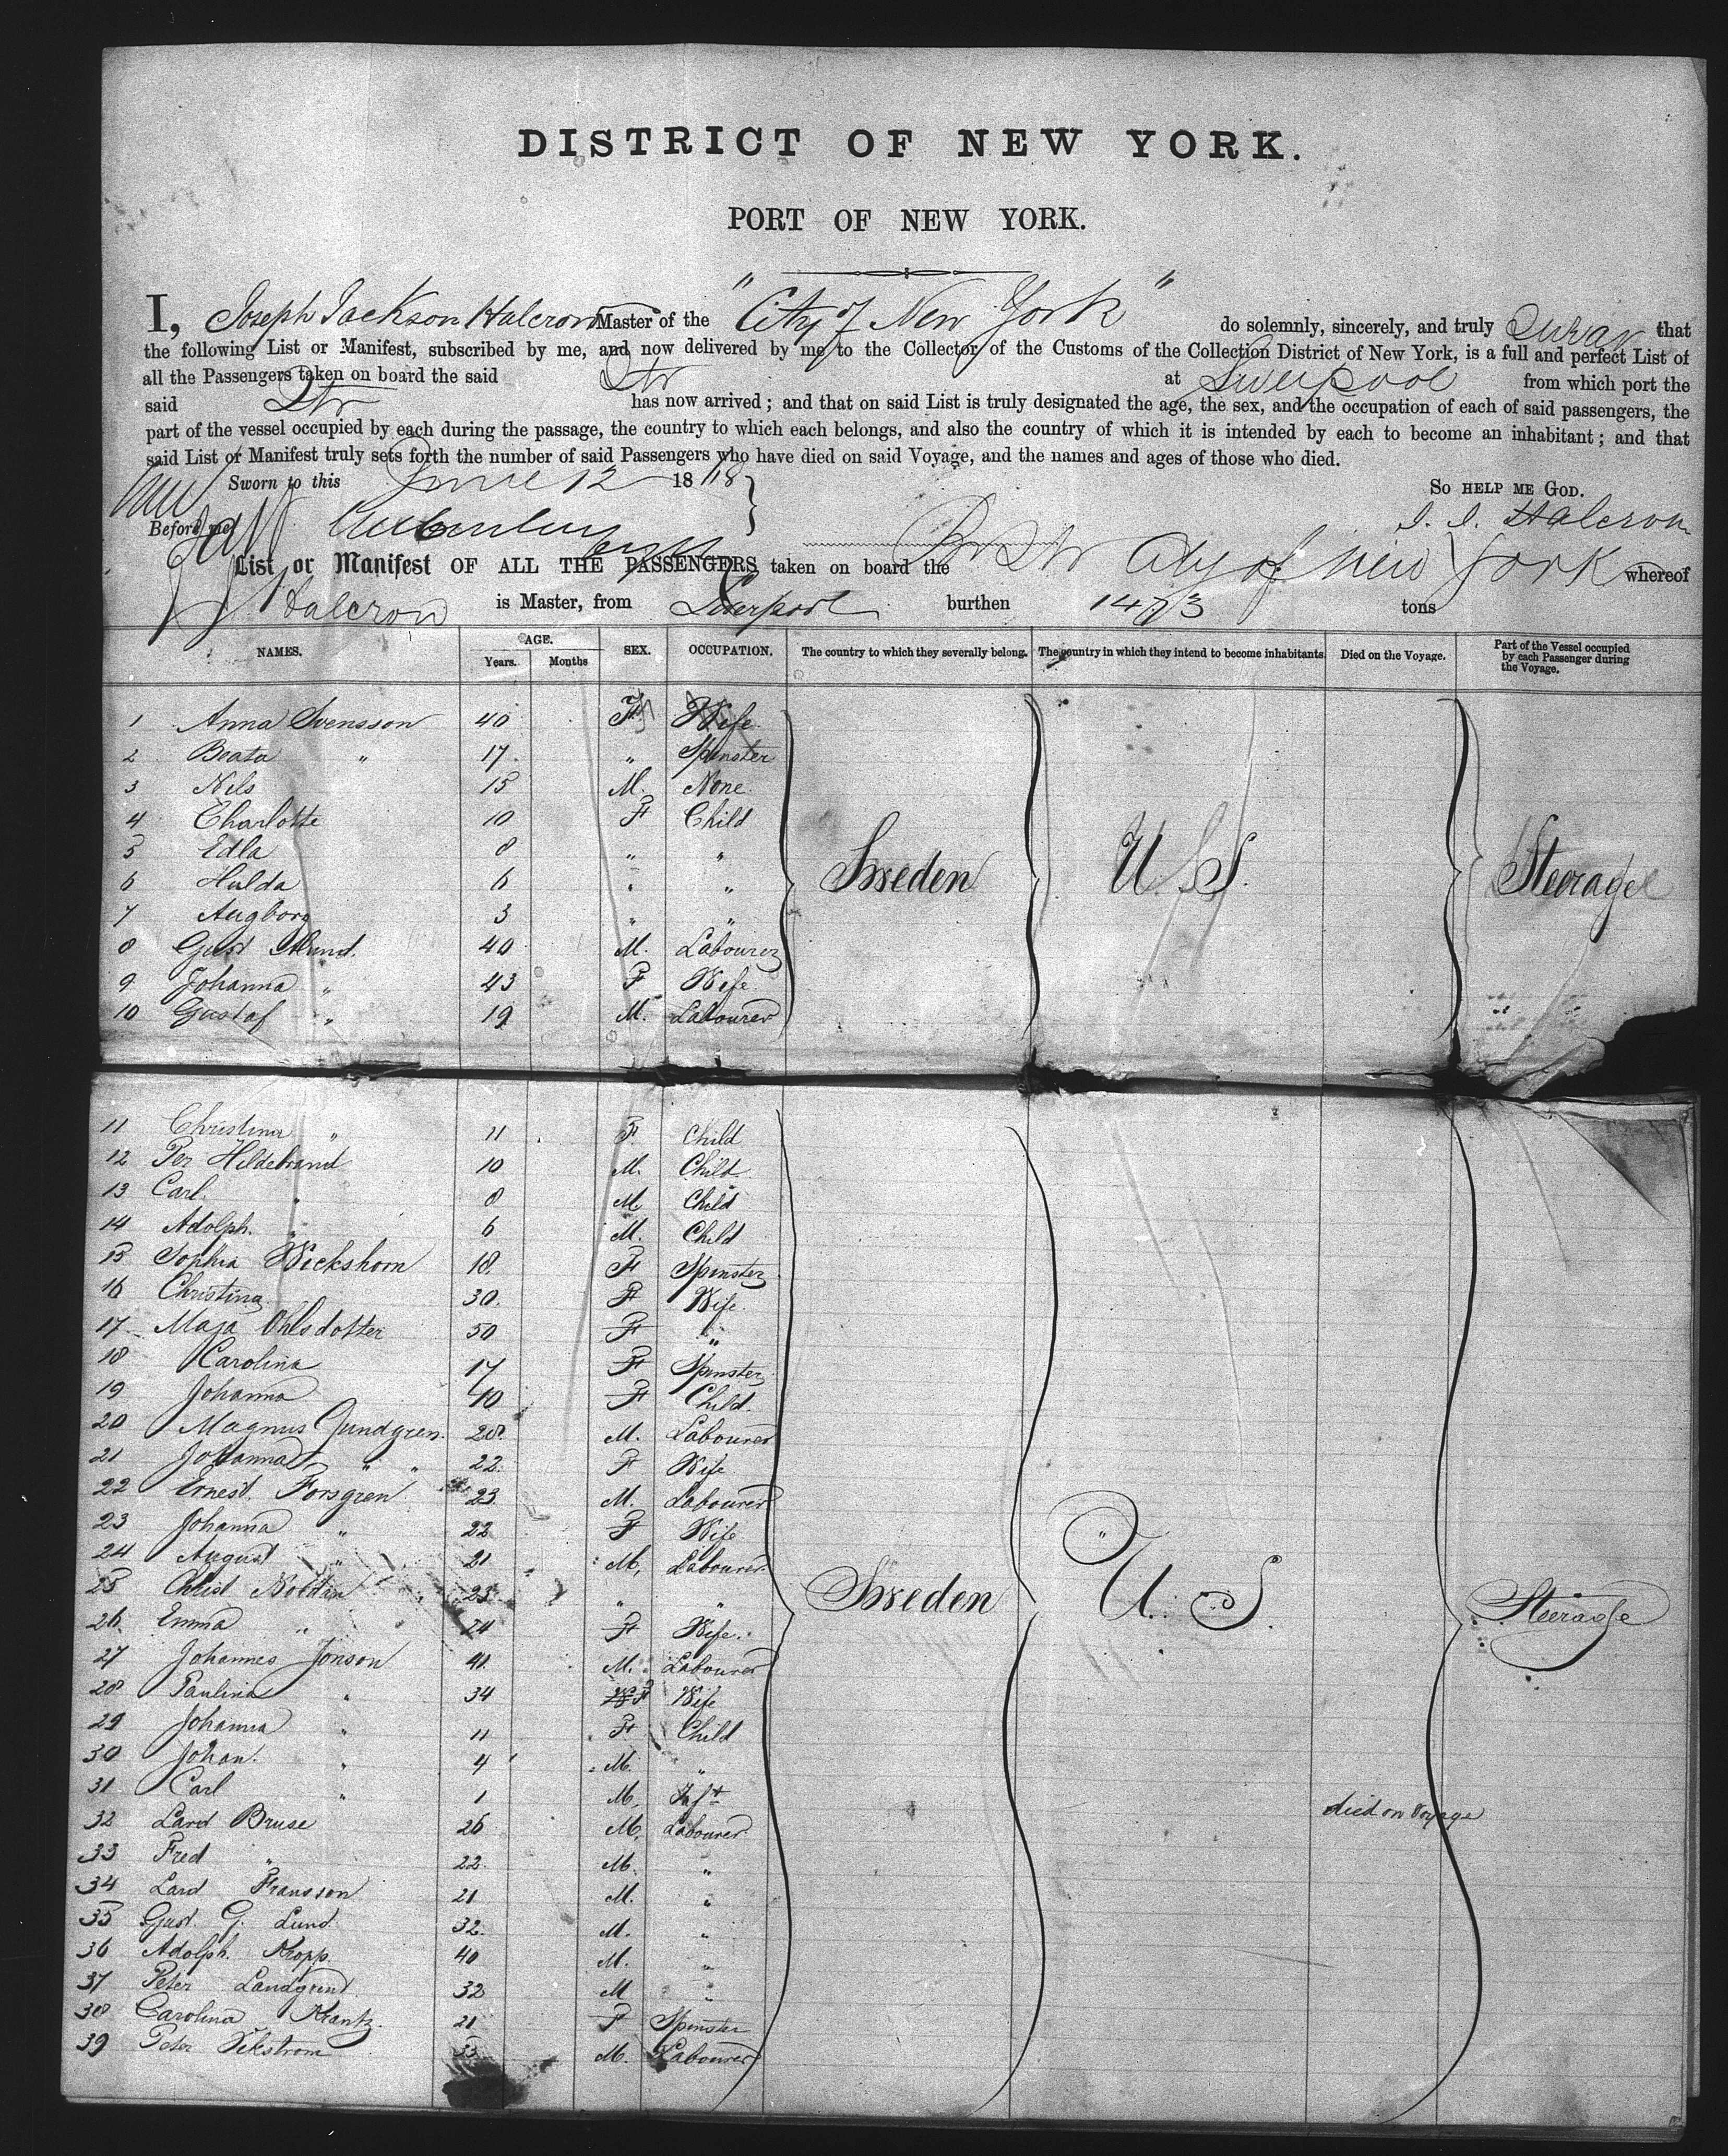 DISTRICT OF NEW YORK.
PORT OF NEW YORK.
I, Joseph Jackson Halcron Master of the "City of New York" do solemnly, sincerely, and truly Swear that
the following List or Manifest, subscribed by me, and now delivered by me to the Collector of the Customs of the Collection District of New York, is a full and perfect List of
all the Passengers taken on board the said Str at Liverpool from which port the
said Str has now arrived; and that on said List is truly designated the age, the sex, and the occupation of each of said passengers, the
part of the vessel occupied by each during the passage, the country to which each belongs, and also the country of which it is intended by each to become an inhabitant; and that
said List or Manifest truly sets forth the number of said Passengers who have died on said Voyage, and the names and ages of those who died.
Sworn to this June 12 18 So help me God.
Before me J. J. Halcron
List or Manifest OF ALL THE PASSENGERS taken on board the Br Str City of New York whereof
J J Halcron is Master, from Liverpool burthen tons
NAMES. AGE. Years. Months SEX. OCCUPATION. The country to which they severally belong. The country in which they intend to become inhabitants. Died on the Voyage. Part of the Vessel occupied by each Passenger during the Voyage.
1 Anna Svensson 40 F Wife
2 Beata " 17 " Spinster
3 Nils 15 M. None
4 Charlotte 10 F Child
5 Edla 8 " "
6 Hulda 6 " " Sweden U S. Steerage
7 Augborg 3 " "
8 Gust 40 M. Labourer
9 Johanna " 43 F Wife
10 Gustaf " 19 M. Labourer
11 Christina " 11 F. Child
12 Per Hildebrand 10 M. Child
13 Carl " 8 M Child
14 Adolph. " 6 M. Child
15 Sophia Wickshorn 18 F Spinster
16 Christina 30. F Wife
17 Maja Ohlsdotter 50 F "
18 Carolina 17 F Spinster
19 Johanna 10 F Child
20 Magnus Jundgren 28 M. Labourer
21 Johanna " " 22 F Wife
22 Ernest. Forsgren 23 M. Labourer
23 Johanna " 22 F Wife
24 August " 21 M, Labourer
25 Christ 23 " " Sweden U. S. Steerage
26 Emma " 24 F Wife.
27 Johannes Jonson 41 M. Labourer
28 Paulina " 34 F Wife
29 Johanna " 11 F Child
30 Johan. " 4 M. "
31 Carl " 1 M, Inft died on Voyage
32 Lard Bruse 26 M, Labourer
33 Fred " 22 M. "
34 Lard Fransson 21 M. "
35 Gust. G. Lund 32. M. "
36 Adolph. Kropp 40 M. "
37 Peter Landgrend 32 M "
38 Carolina Krantz. 21 F Spinster
39 Peter Ekstrom M. Labourer